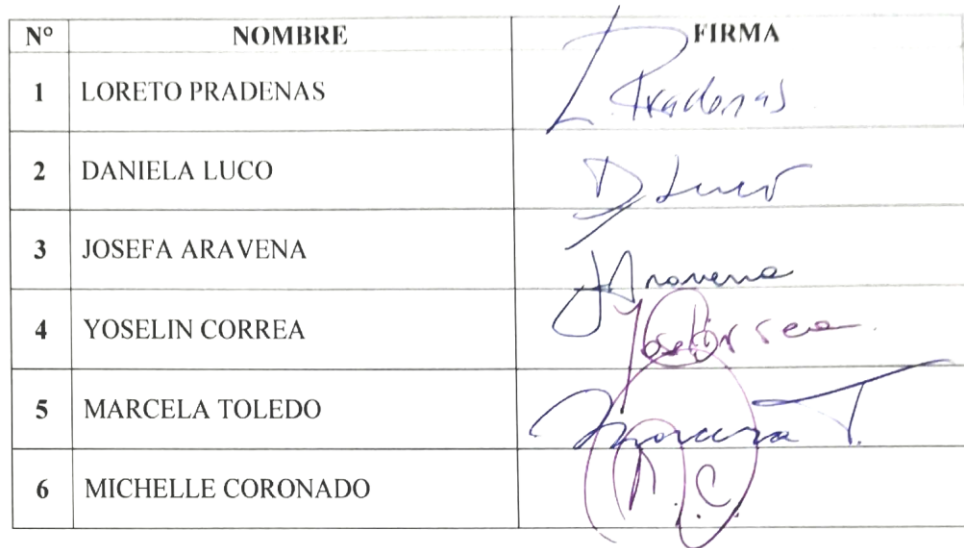 N° NOMBRE FIRMA
1 LORETO PRADENAS L. Pradenas
2 DANIELA LUCO D Luco
3 JOSEFA ARAVENA J Aravena
4 YOSELIN CORREA
5 MARCELA TOLEDO Marcela T.
6 MICHELLE CORONADO M.C.